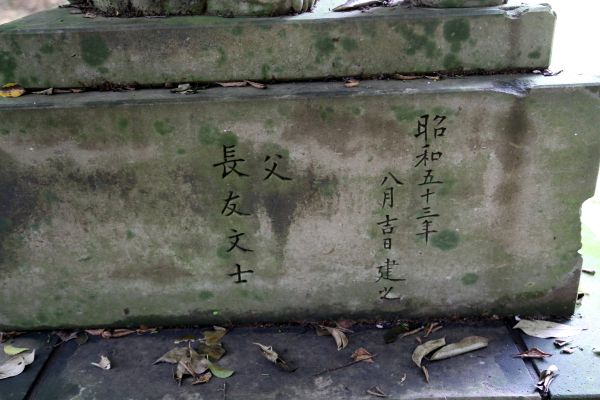 昭和五十三年
八月吉日建之
父
長友文士